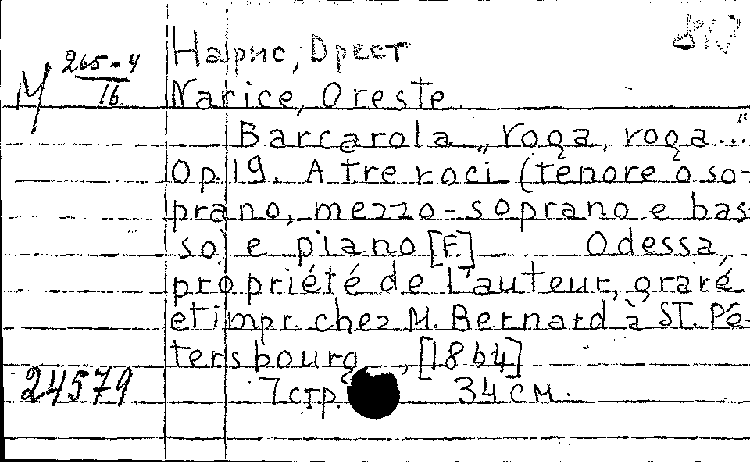 М 265-4
16
Нарис, Орест
Narice, Oreste
Barcarola „Voga, voga..."
Op. 19. A tre voci (tenore o so-
prano, mezzo-soprano e bas-
so) e piano [F.] Odessa,
propriété de l'auteur, gravé
et impr. chez M. Bernard à St. Pé-
tersbourg, [1864]
24579 7 стр. 34 см.